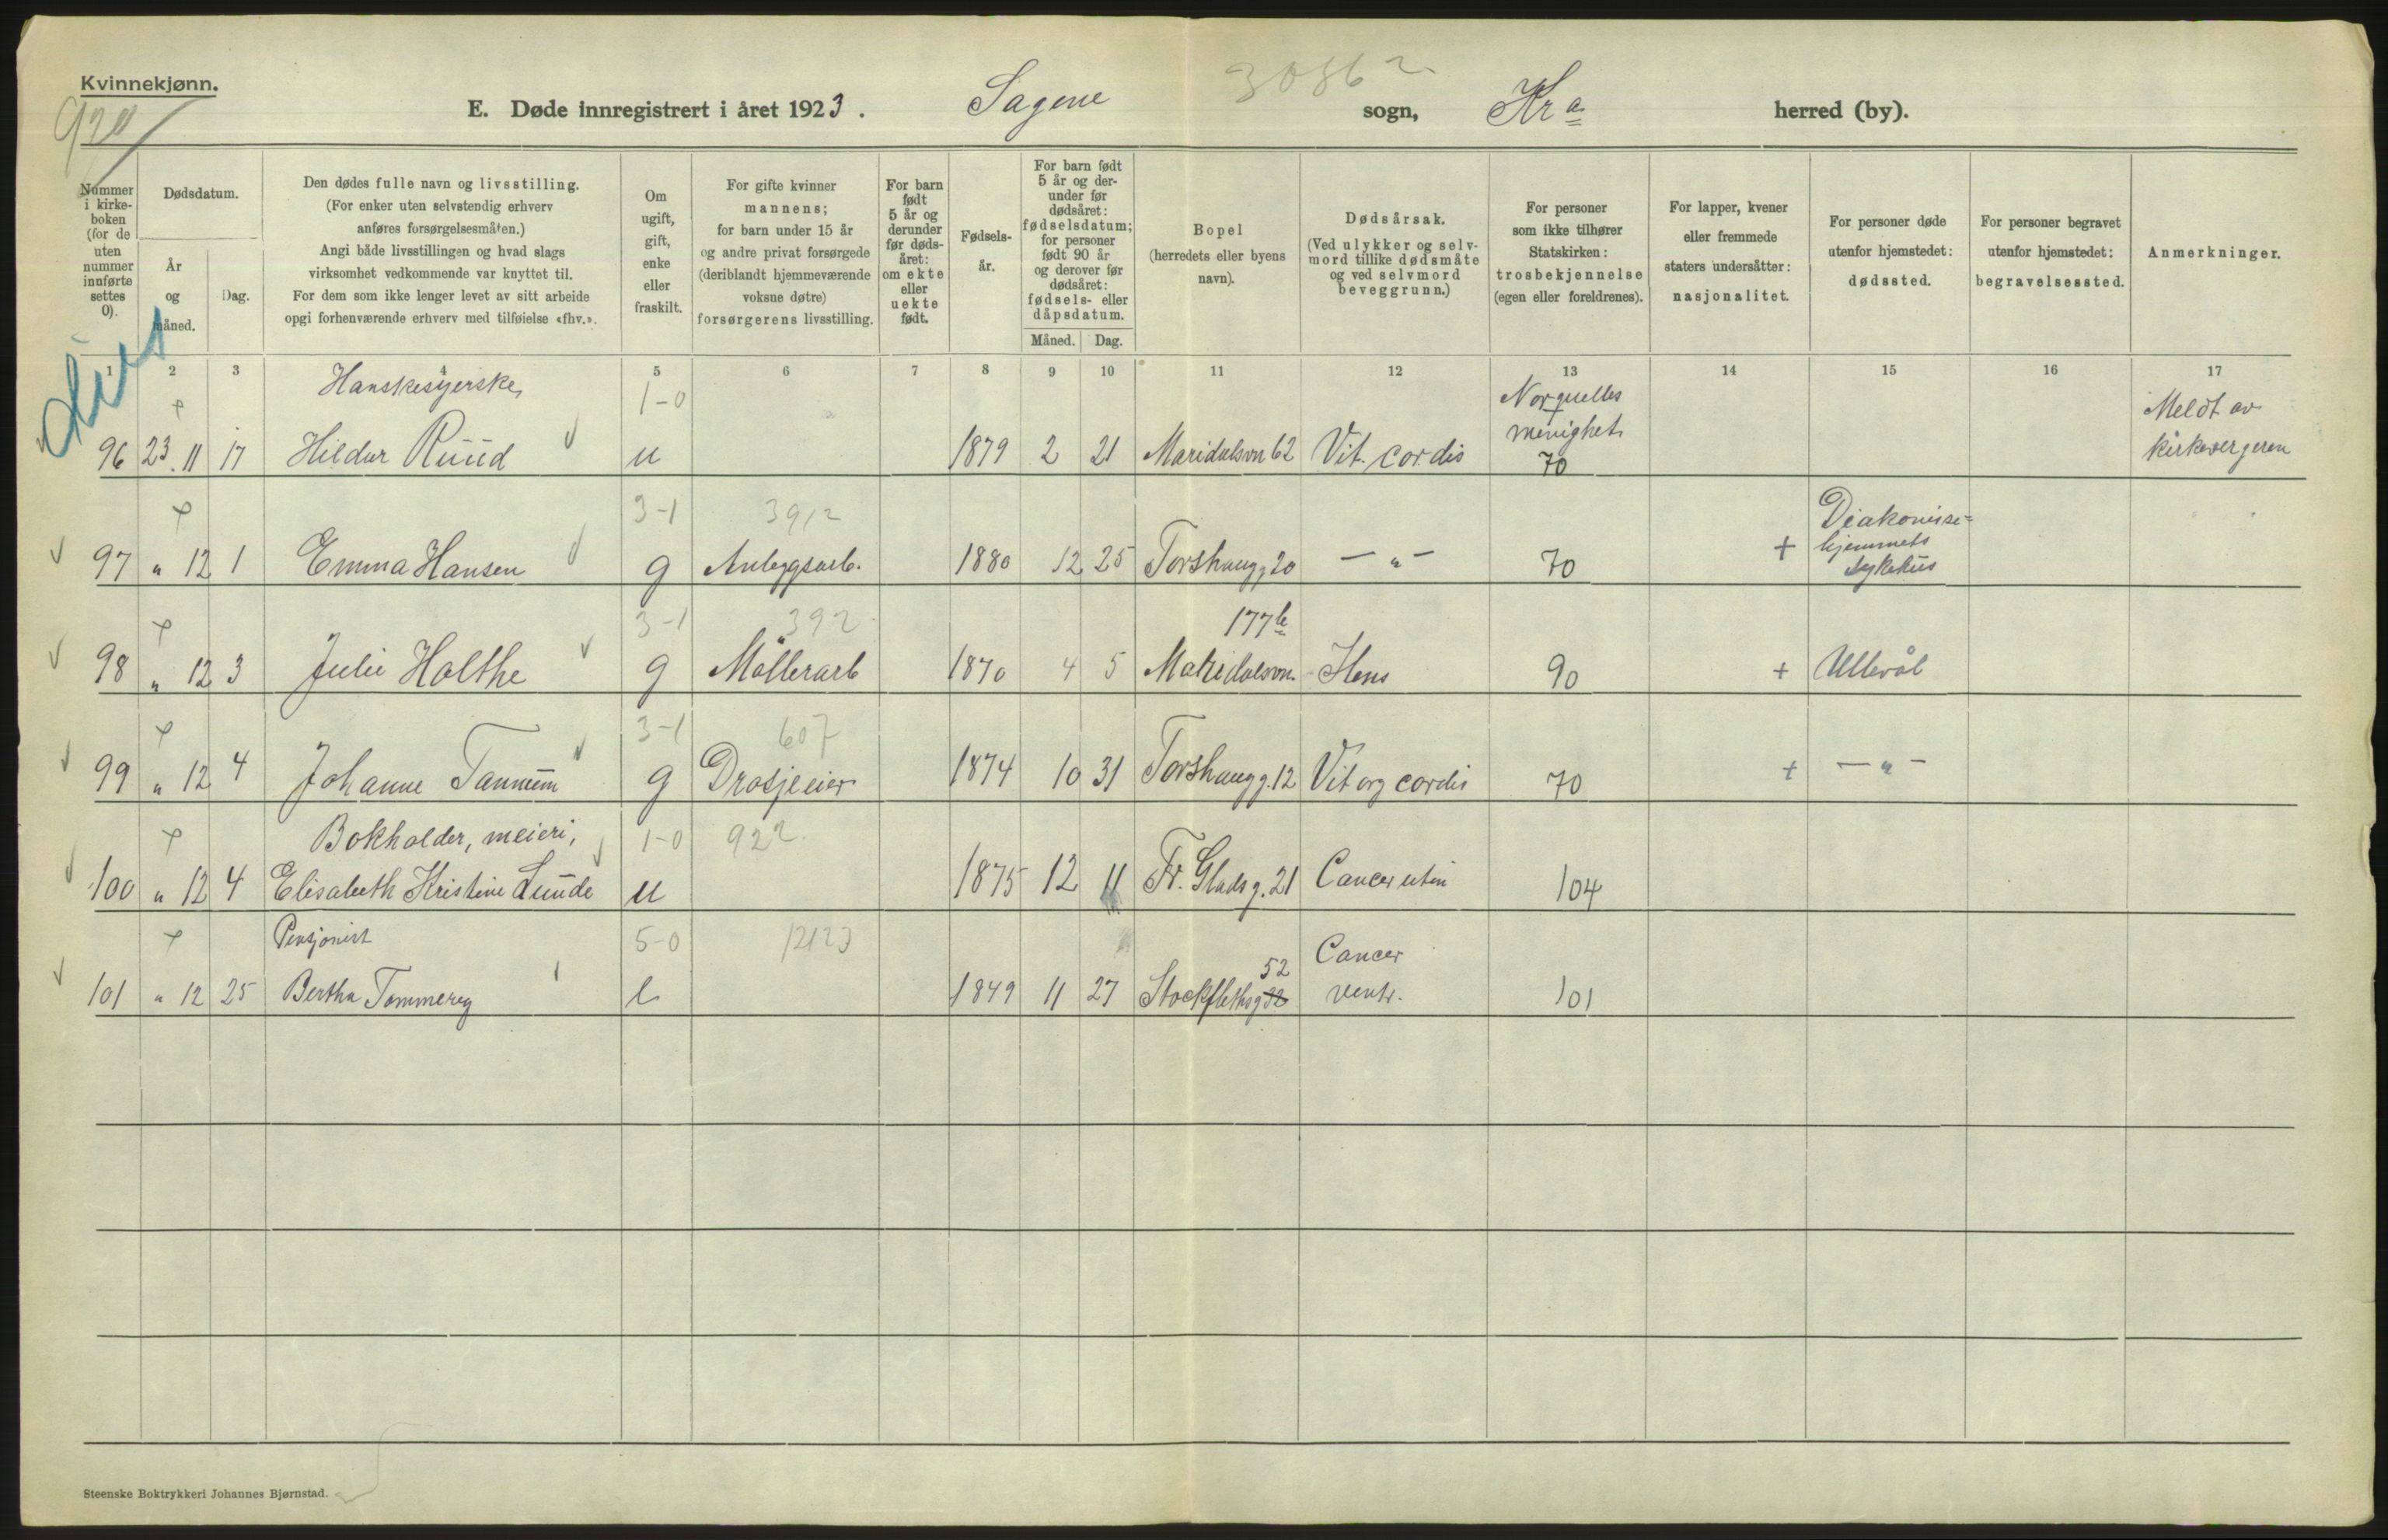 Kvinnekjønn.
920
E. Døde innregistrert i året 1923. Sagene sogn, Kra herred (by).
30862
Nummer i kirkeboken (for de uten nummer innførte settes 0).
Dødsdatum.
År og måned.
Dag.
Den dødes fulle navn og livsstilling.
(For enker uten selvstendig erhverv
anføres forsørgelsesmåten.)
Angi både livsstillingen og hvad slags
virksomhet vedkommende var knyttet til.
For dem som ikke lenger levet av sitt arbeide
opgi forhenværende erhverv med tilføielse «fhv.».
Om ugift, gift, enke eller fraskilt.
For gifte kvinner
mannens;
for barn under 15 år
og andre privat forsørgede
(deriblandt hjemmeværende
voksne døtre)
forsørgerens livsstilling.
For barn født 5 år og derunder før dødsåret: om ekte eller uekte født.
Fødselsår.
For barn født 5 år og derunder før dødsåret: fødselsdatum; for personer født 90 år og derover før dødsåret: fødsels- eller dåpsdatum.
Måned. Dag.
Bopel
(herredets eller byens
navn).
Dødsårsak.
(Ved ulykker og selvmord tillike dødsmåte og ved selvmord beveggrunn.)
For personer
som ikke tilhører
Statskirken:
trosbekjennelse
(egen eller foreldrenes).
For lapper, kvener
eller fremmede
staters undersåtter:
nasjonalitet.
For personer døde
utenfor hjemstedet:
dødssted.
For personer begravet
utenfor hjemstedet:
begravelsessted.
Anmerkninger.
1 2 3 4 5 6 7 8 9 10 11 12 13 14 15 16 17
Hanskesyerske, 1-0
96 23. 11 17 Hildur Ruud u 1879 2 21 Maridalsvn 62 Vit. cordis menighet 70 Meldt av kirkevergeren
3-1 3912
97 " 12 1 Emma Hansen g Anleggsarb. 1880 12 25 Torshaugg 20 — " — 70 + Diakonisse=
hjemmets
sykehus
3-1 392 177b
98 " 12 3 Julie Holthe g Möllerarb 1870 4 5 Maridalsvn. 90 + Ullevål
3-1 607
99 " 12 4 Johanne Tannum g Drosjeeier 1874 10 31 Torshaugg. 12 Vit org cordis 70 + — " —
Bokholder, meieri, 1-0 922
100 " 12 4 Elisabeth Kristine Lunde u 1875 12 11 Fr. Gladsg. 21 Cancer uteri 104
Pensjonist 5-0 12123 Cancer
101 " 12 25 Bertha Tommerey e 1849 11 27 Stockflethsg 32 52 ventr. 101
Steenske Boktrykkeri Johannes Bjørnstad.